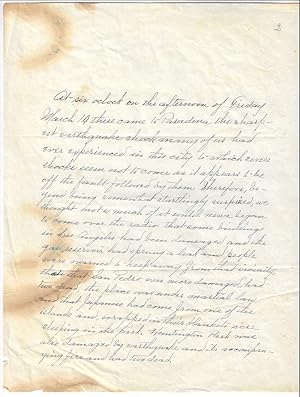 At six oclock on the afternoon of Friday
March 10 there came to Pasadena the sharp-
est earthquake shock any of us had
ever experienced in this city, to which severe
shocks seem not to come as it appears to be
off the fault followed by them. Therefore, be-
yond being somewhat startlingly surprised, we
thought not a much of it until news began
to come over the radio that some buildings
in Los Angeles had been damaged and the
gas reservoir had sprung a leak and people
were warned to keep away from that vicinity,
that San Pedro were more damaged, had
two dead, the place was under martial law
and that Japanese had come from one of the
islands and, wrapped in their blankets were
sleeping in the park. Huntington Park was
also damaged by earthquake and its accompan-
ying fire and had two dead.